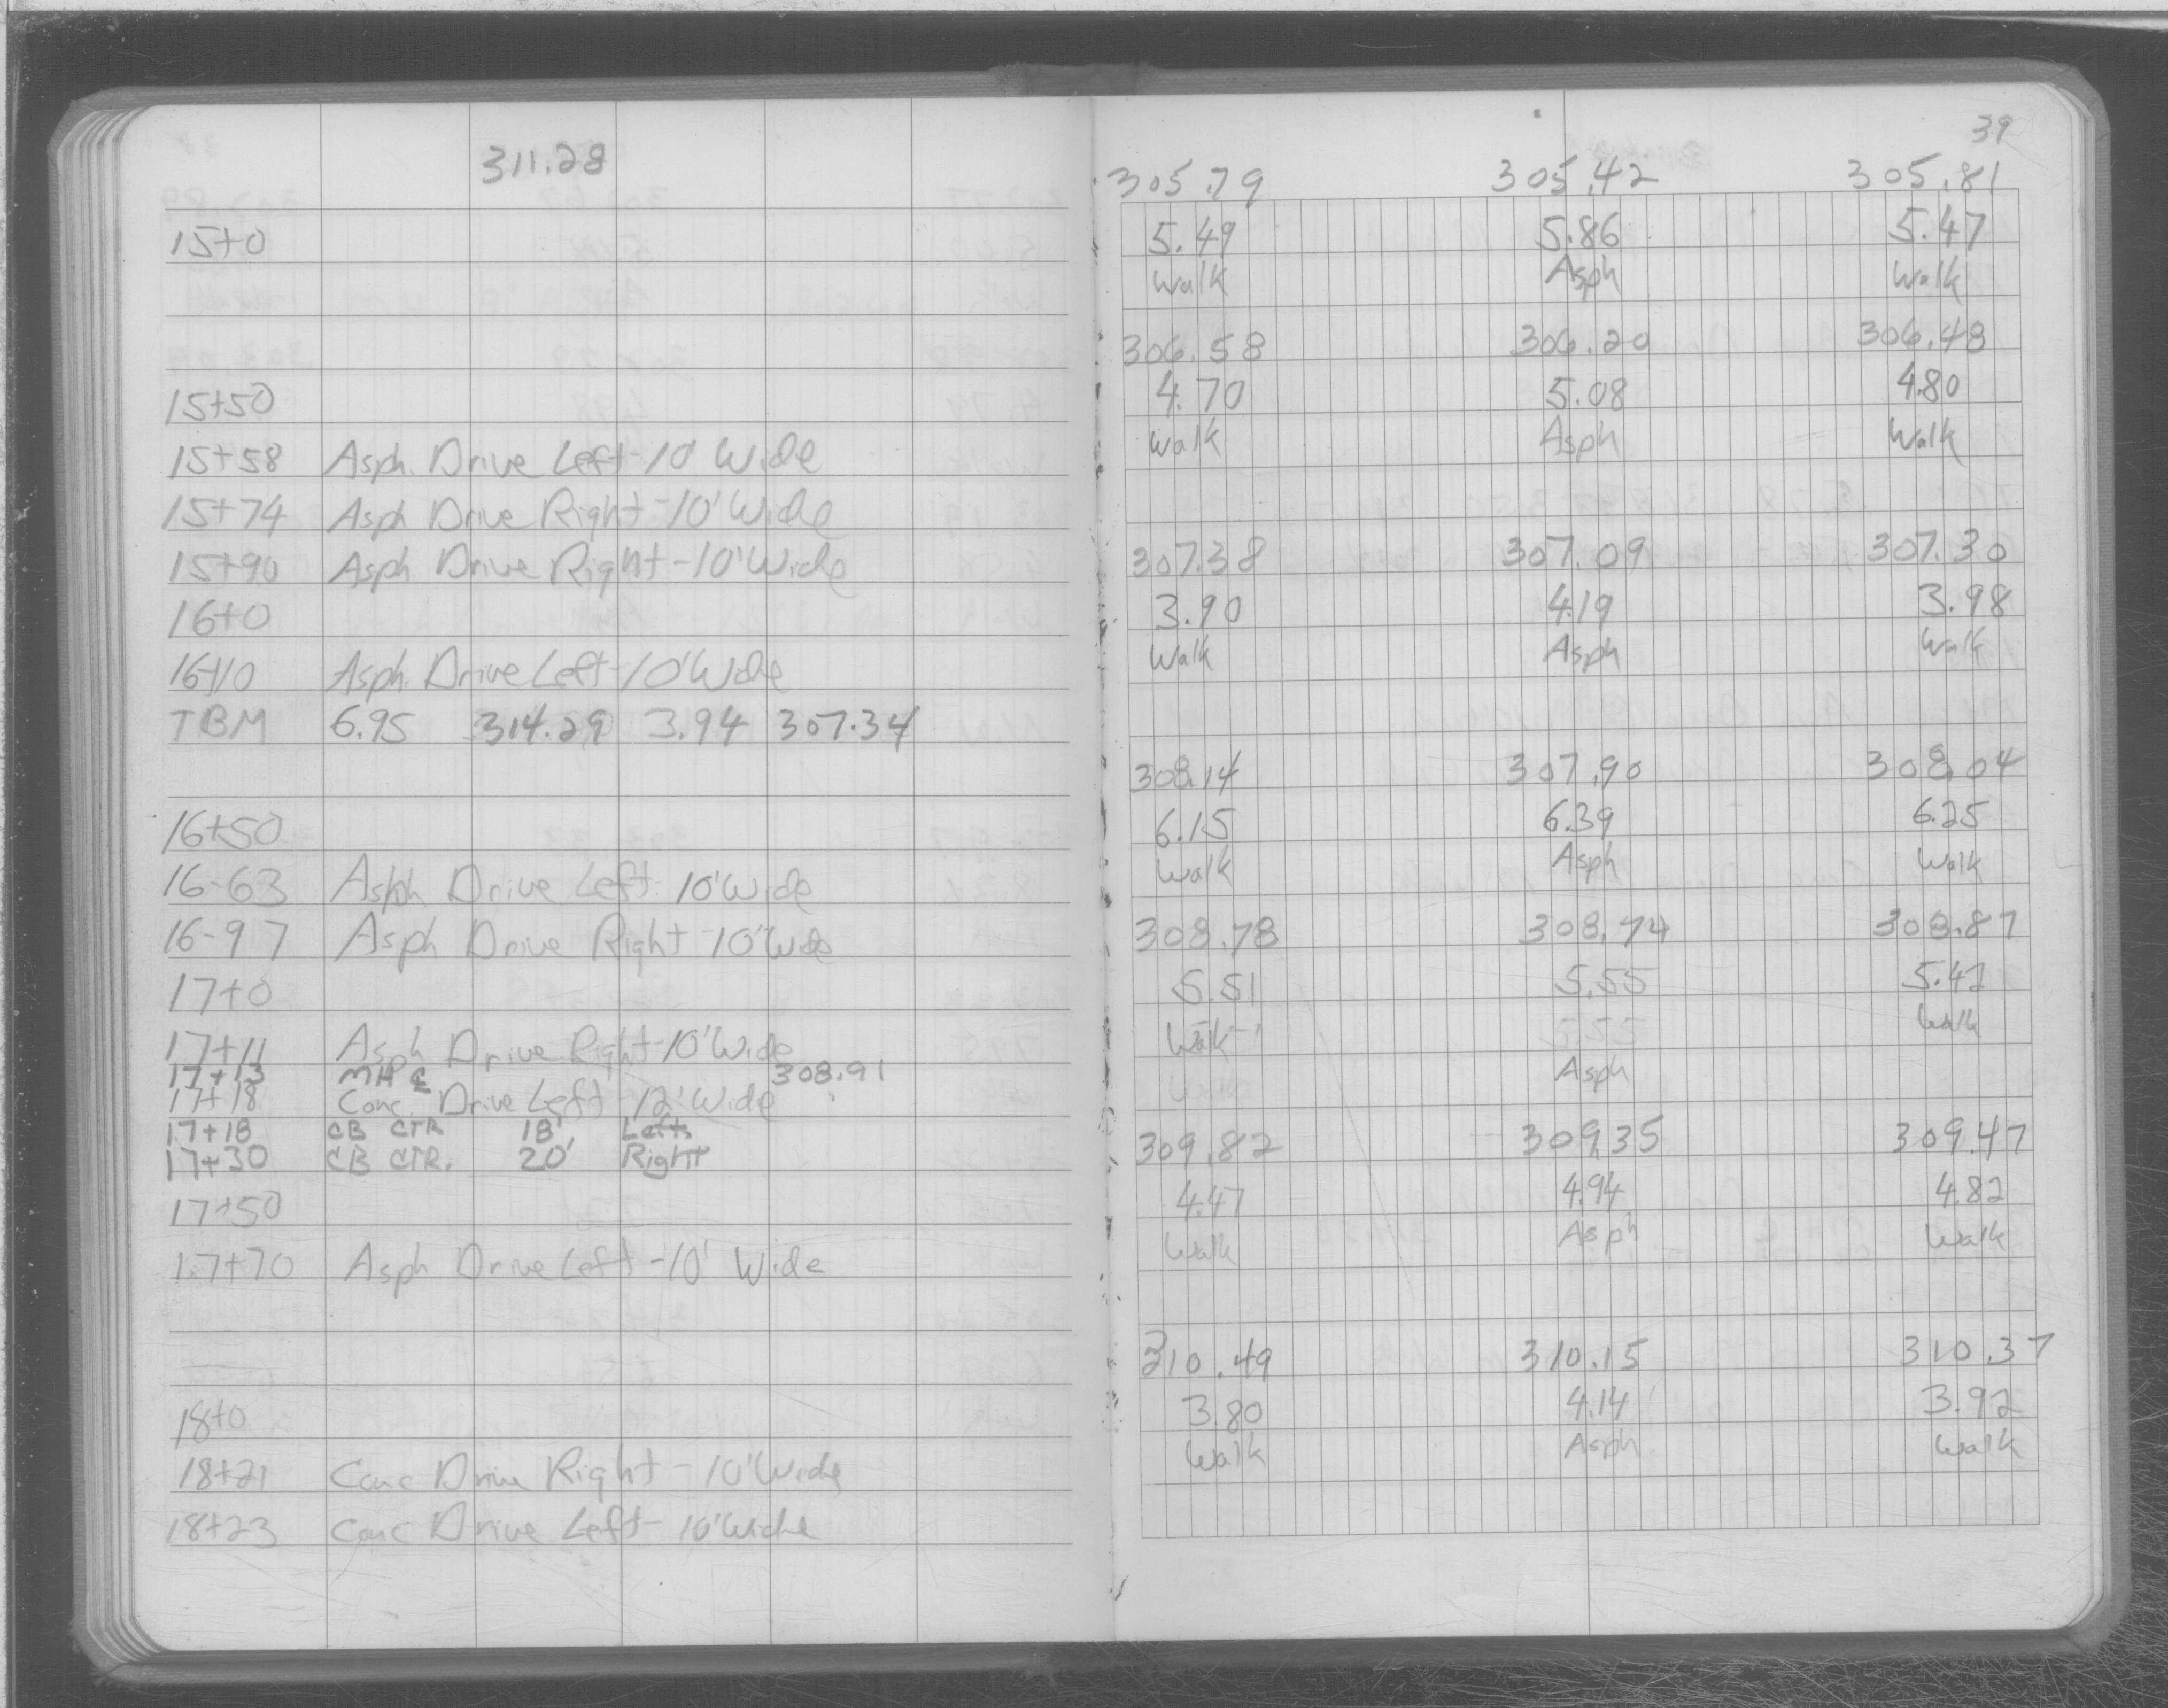 311.28
15+0
15+50
15+58 Asph. Drive Left-10' Wide
15+74 Asph Drive Right-10' Wide
15+90 Asph Drive Right-10' Wide
16+0
16+10 Asph. Drive Left-10' Wide
TBM 6.95 314.29 3.94 307.34
16+50
16-63 Asph Drive Left-10' Wide
16-97 Asph Drive Right-10' Wide
17+0
17+11 Asph Drive Right-10' Wide
17+13 MH ℄ 308.91
17+18 Conc. Drive Left-12' Wide
17+18 CB CTR 18' Left
17+30 CB CTR. 20' Right
17+50
17+70 Asph Drive Left-10' Wide
18+0
18+21 Conc Drive Right-10' Wide
18+23 Conc Drive Left-10' Wide
39
305.79 305.42 305.81
5.49 5.86 5.47
Walk Asph Walk
306.58 306.20 306.48
4.70 5.08 4.80
Walk Asph Walk
307.38 307.09 307.30
3.90 4.19 3.98
Walk Asph Walk
308.14 307.90 308.04
6.15 6.39 6.25
Walk Asph Walk
308.78 308.74 308.87
5.51 5.55 5.42
Walk 5.55 Walk
Walk Asph
309.82 309.35 309.47
4.47 4.94 4.82
Walk Asph Walk
310.49 310.15 310.37
3.80 4.14 3.92
Walk Asph Walk